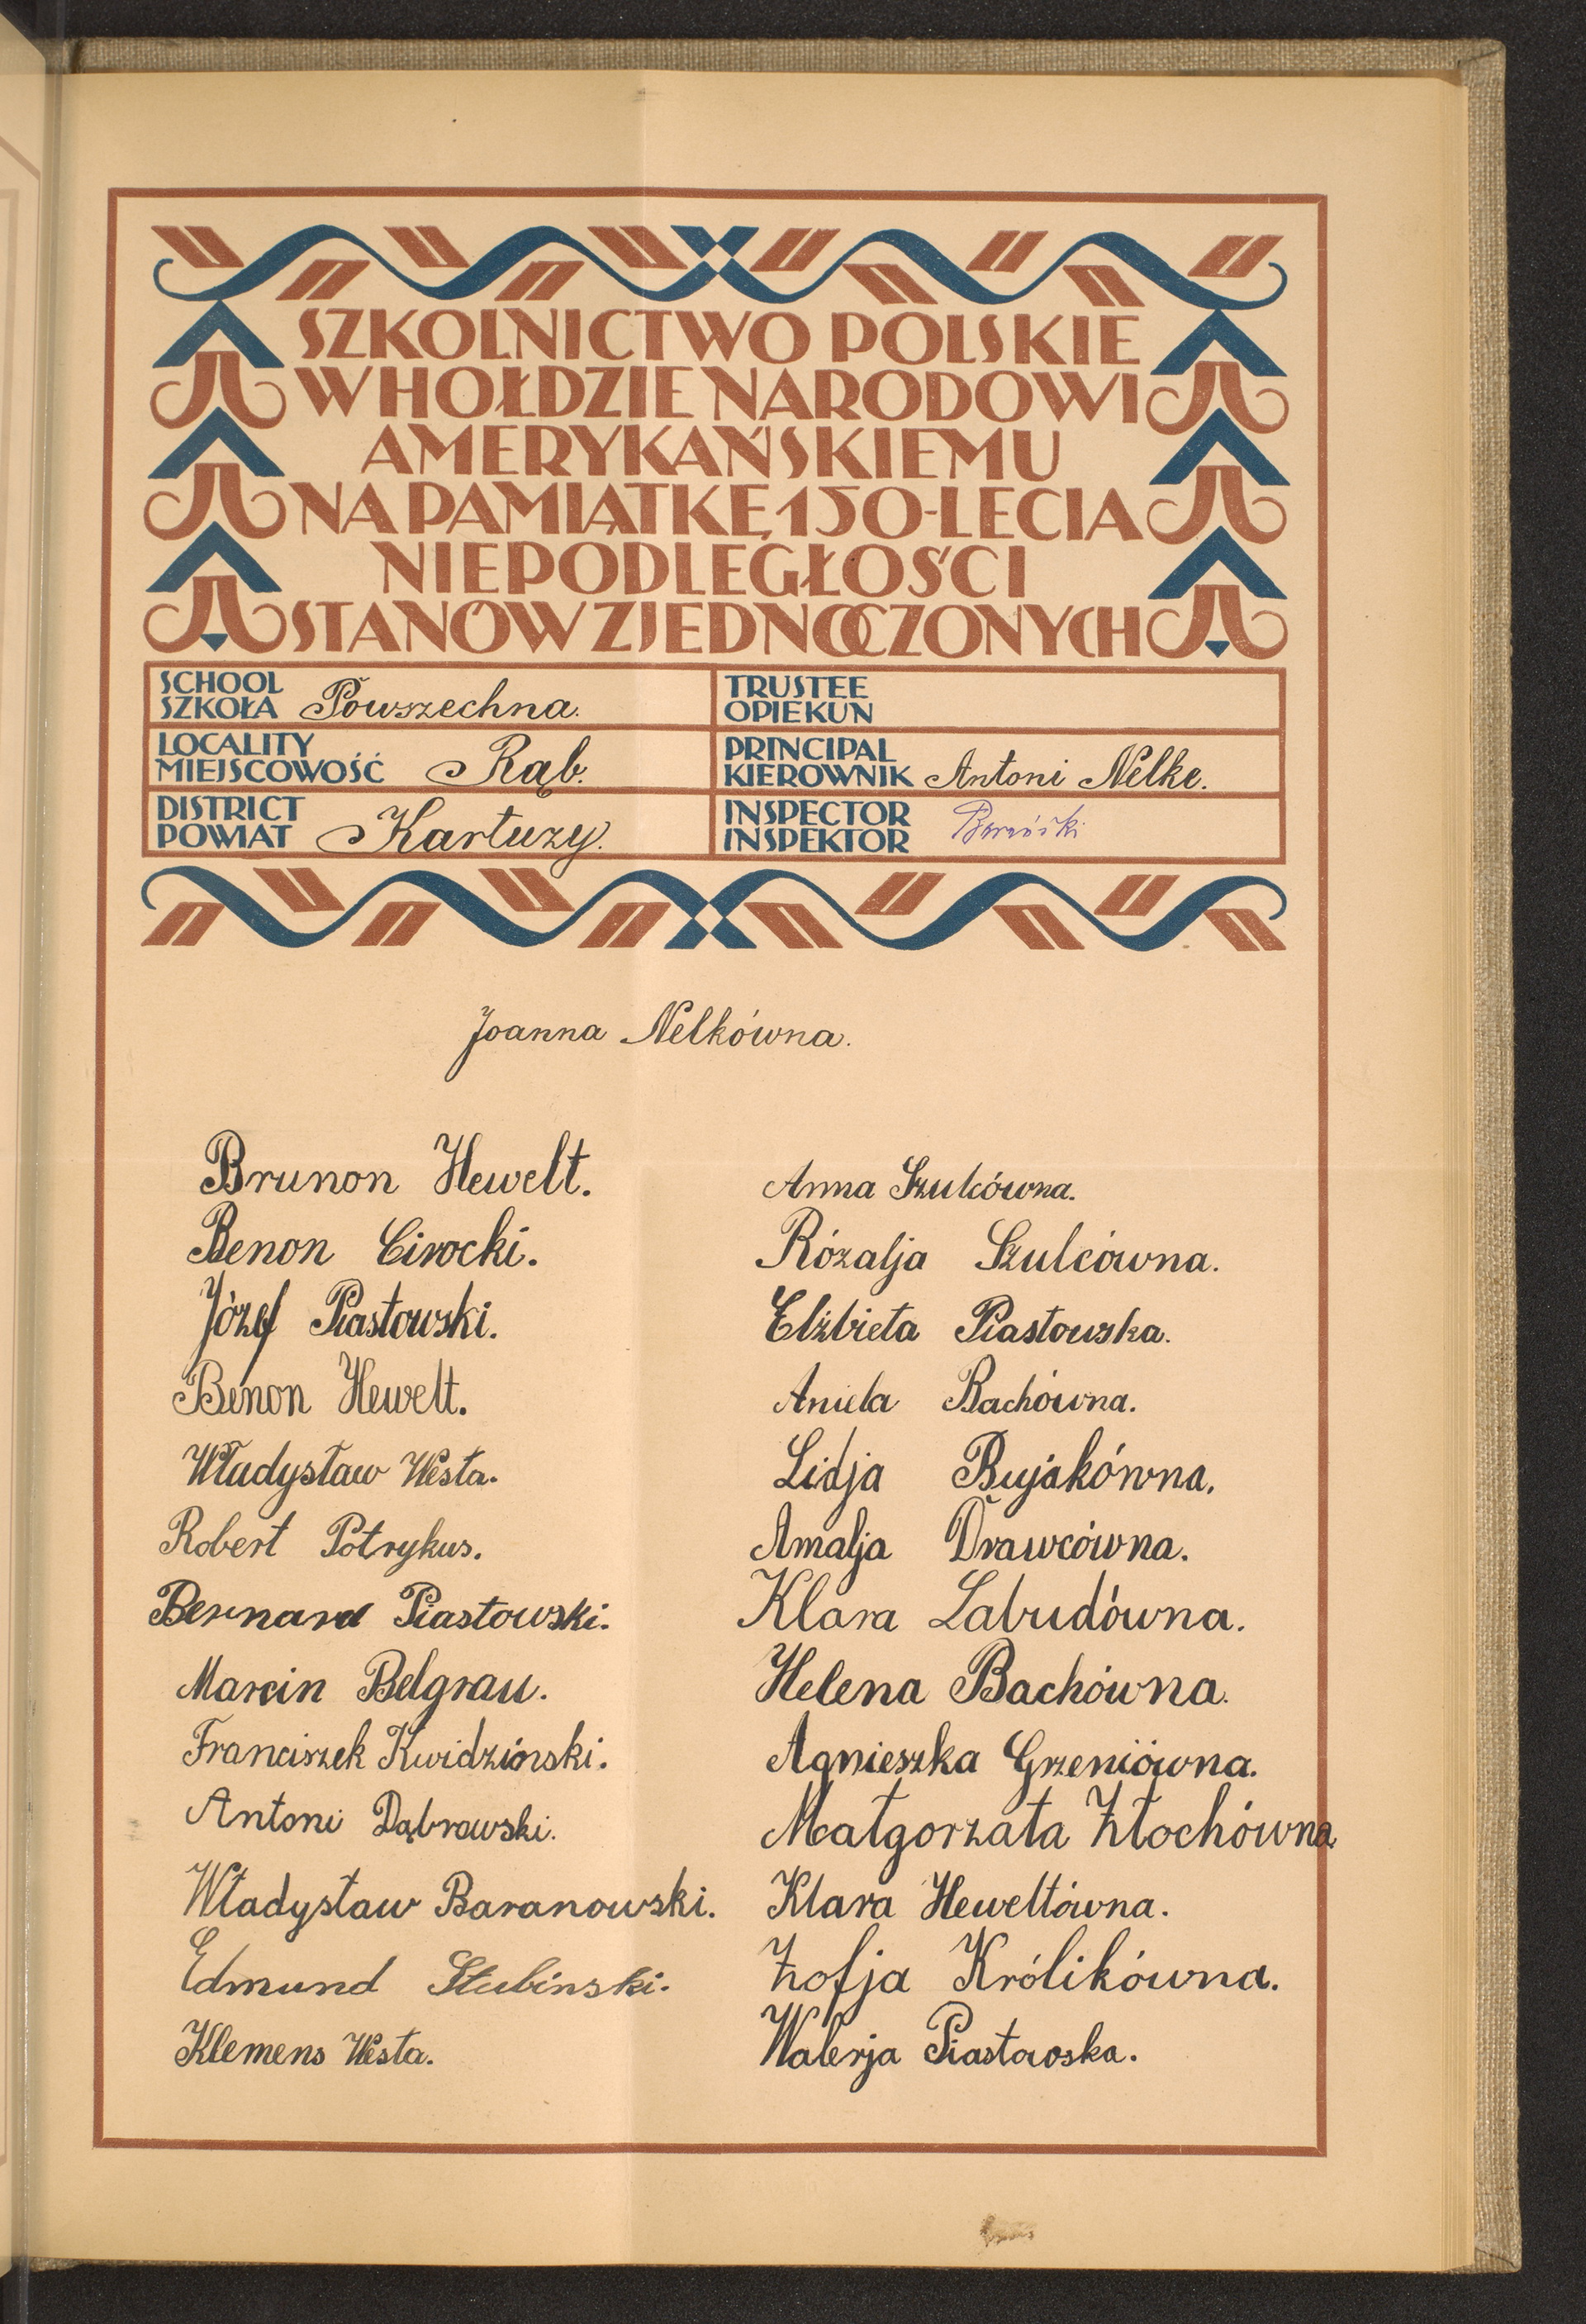 SZKOLNICTWO POLSKIE
W HOŁDZIE NARODOWI
AMERYKAŃSKIEMU
NA PAMIĄTKĘ 150-LECIA
NIEPODLEGŁOŚCI
STANÓW ZJEDNOCZONYCH
SCHOOL
SZKOŁA Powszechna.
TRUSTEE
OPIEKUN
LOCALITY
MIEJSCOWOŚĆ Rąb.
PRINCIPAL
KIEROWNIK Antoni Nelke.
DISTRICT
POWIAT Kartuzy.
INSPECTOR
INSPEKTOR
Joanna Nelkówna.
Brunon Hewelt.
Benon Cirocki.
Józef Piastowski.
Benon Hewelt.
Władysław Westa.
Robert Potrykus.
Bernard Piastowski.
Marcin Belgrau.
Franciszek Kwidziński.
Antoni Dąbrowski.
Władysław Baranowski.
Edmund Stubinski.
Klemens Westa.
Anna Szulcówna.
Rózalja Szulcówna.
Elżbieta Piastowska.
Aniela Bachówna.
Lidja Bujakówna.
Amalja Drawcówna.
Klara Labudówna.
Helena Bachówna.
Agnieszka Grzeniówna.
Małgorzata Złochówna
Klara Heweltówna.
Zofja Królikówna.
Walerja Piastowska.